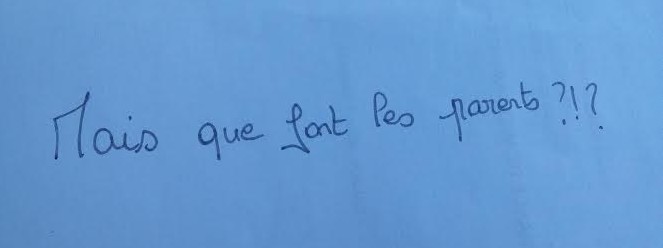 Mais que font les parents ?!?